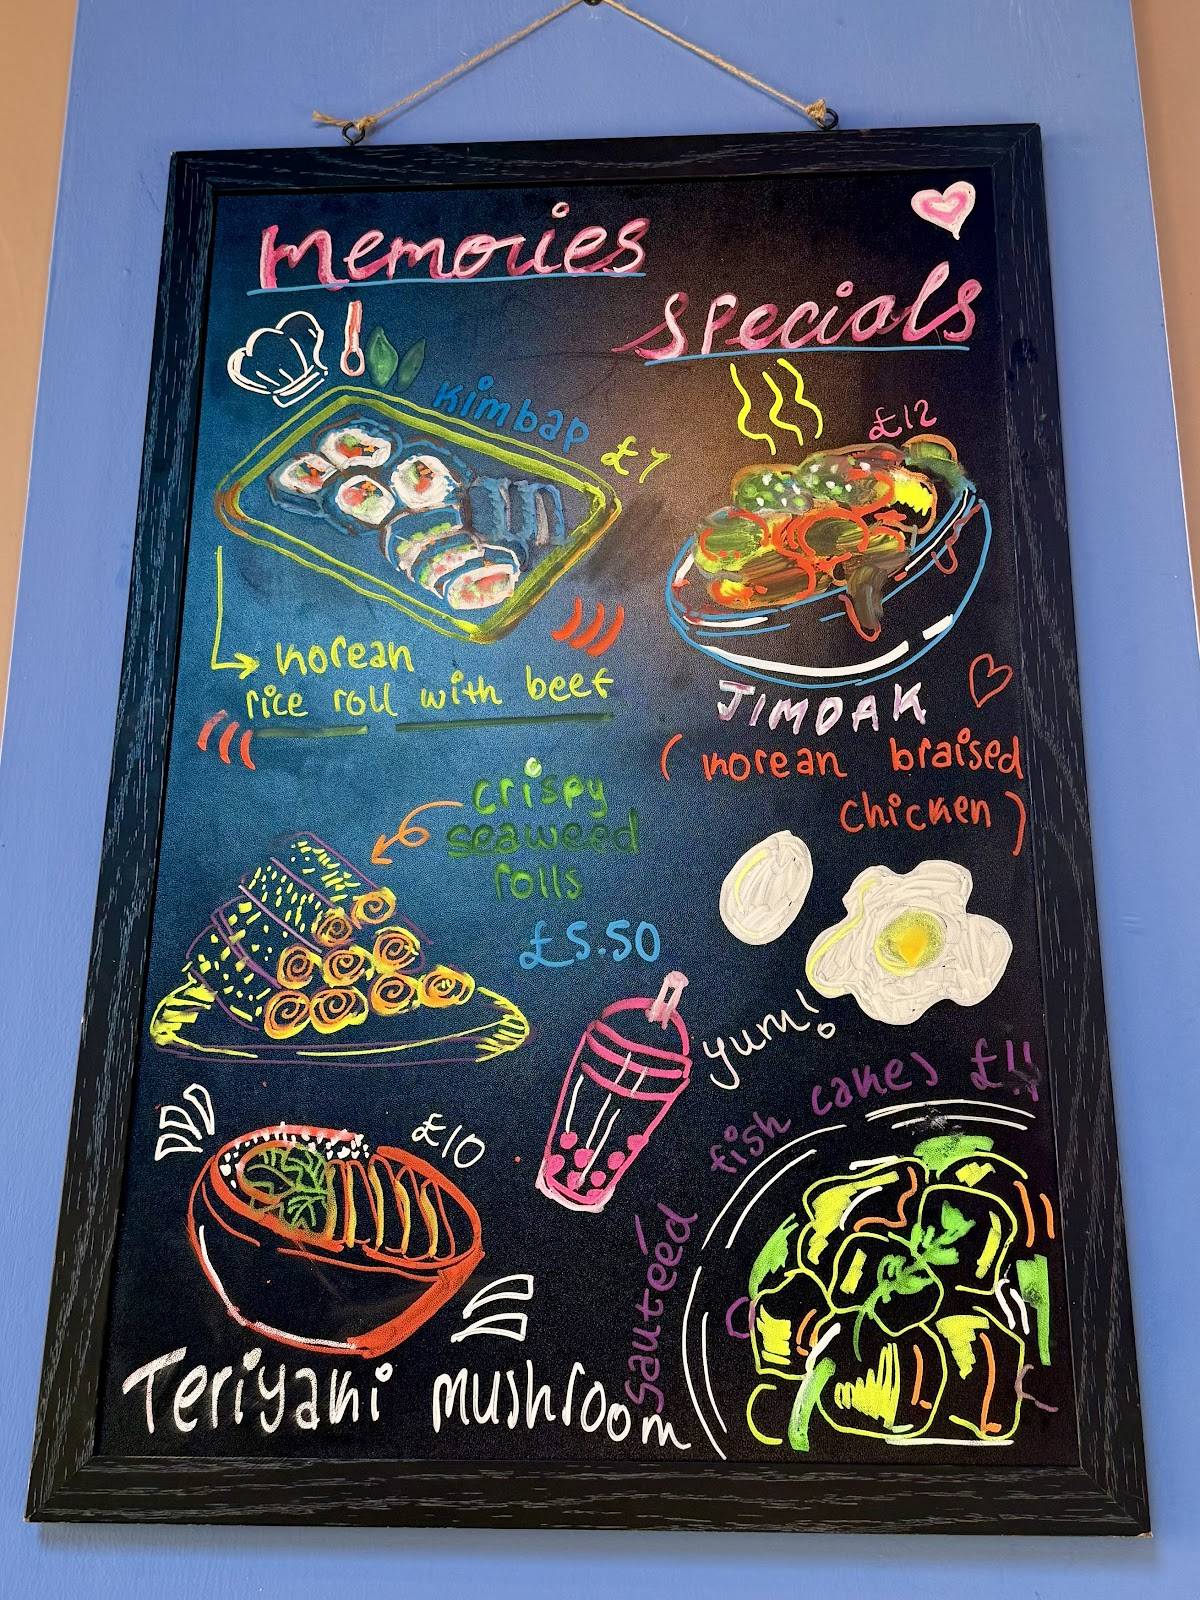 Memories
Specials
Kimbap
£7
£12
Korean
rice roll with beef
JIMDAK
(Korean braised
chicken)
crispy
seaweed
rolls
£5.50
yum!
£10
Teriyaki mushroom
sautéed fish cakes